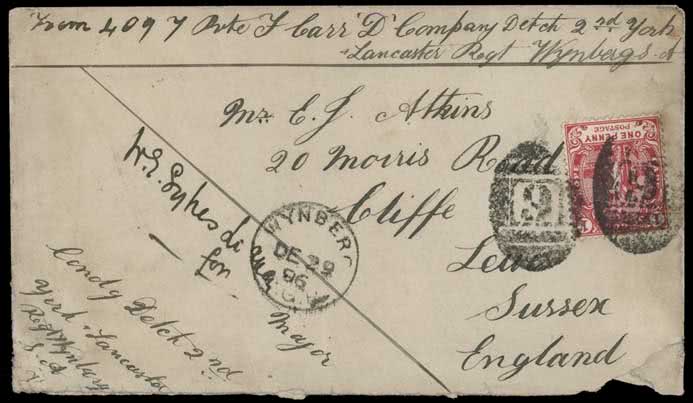 From 4097 Pvte F Carr 'D' Company Detch 2nd York
+ Lancaster Regt Wynberg S. A
Mr. E. J. Atkins
20 Morris Road
Cliffe
Lewes
Sussex
England
ONE PENNY
POSTAGE
9
WYNBERG
DE 29
96
W.E.
for
Major
Comdg Detch 2nd
York + Lancaster
Regt Wynberg
S. A